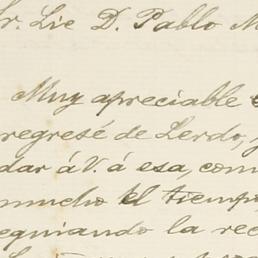 Sr. Lic D. Pablo M
Muy apreciable
regresé de Lerdo, y
dar á V. á esa, com
mucho el tiempo
equiando la rec